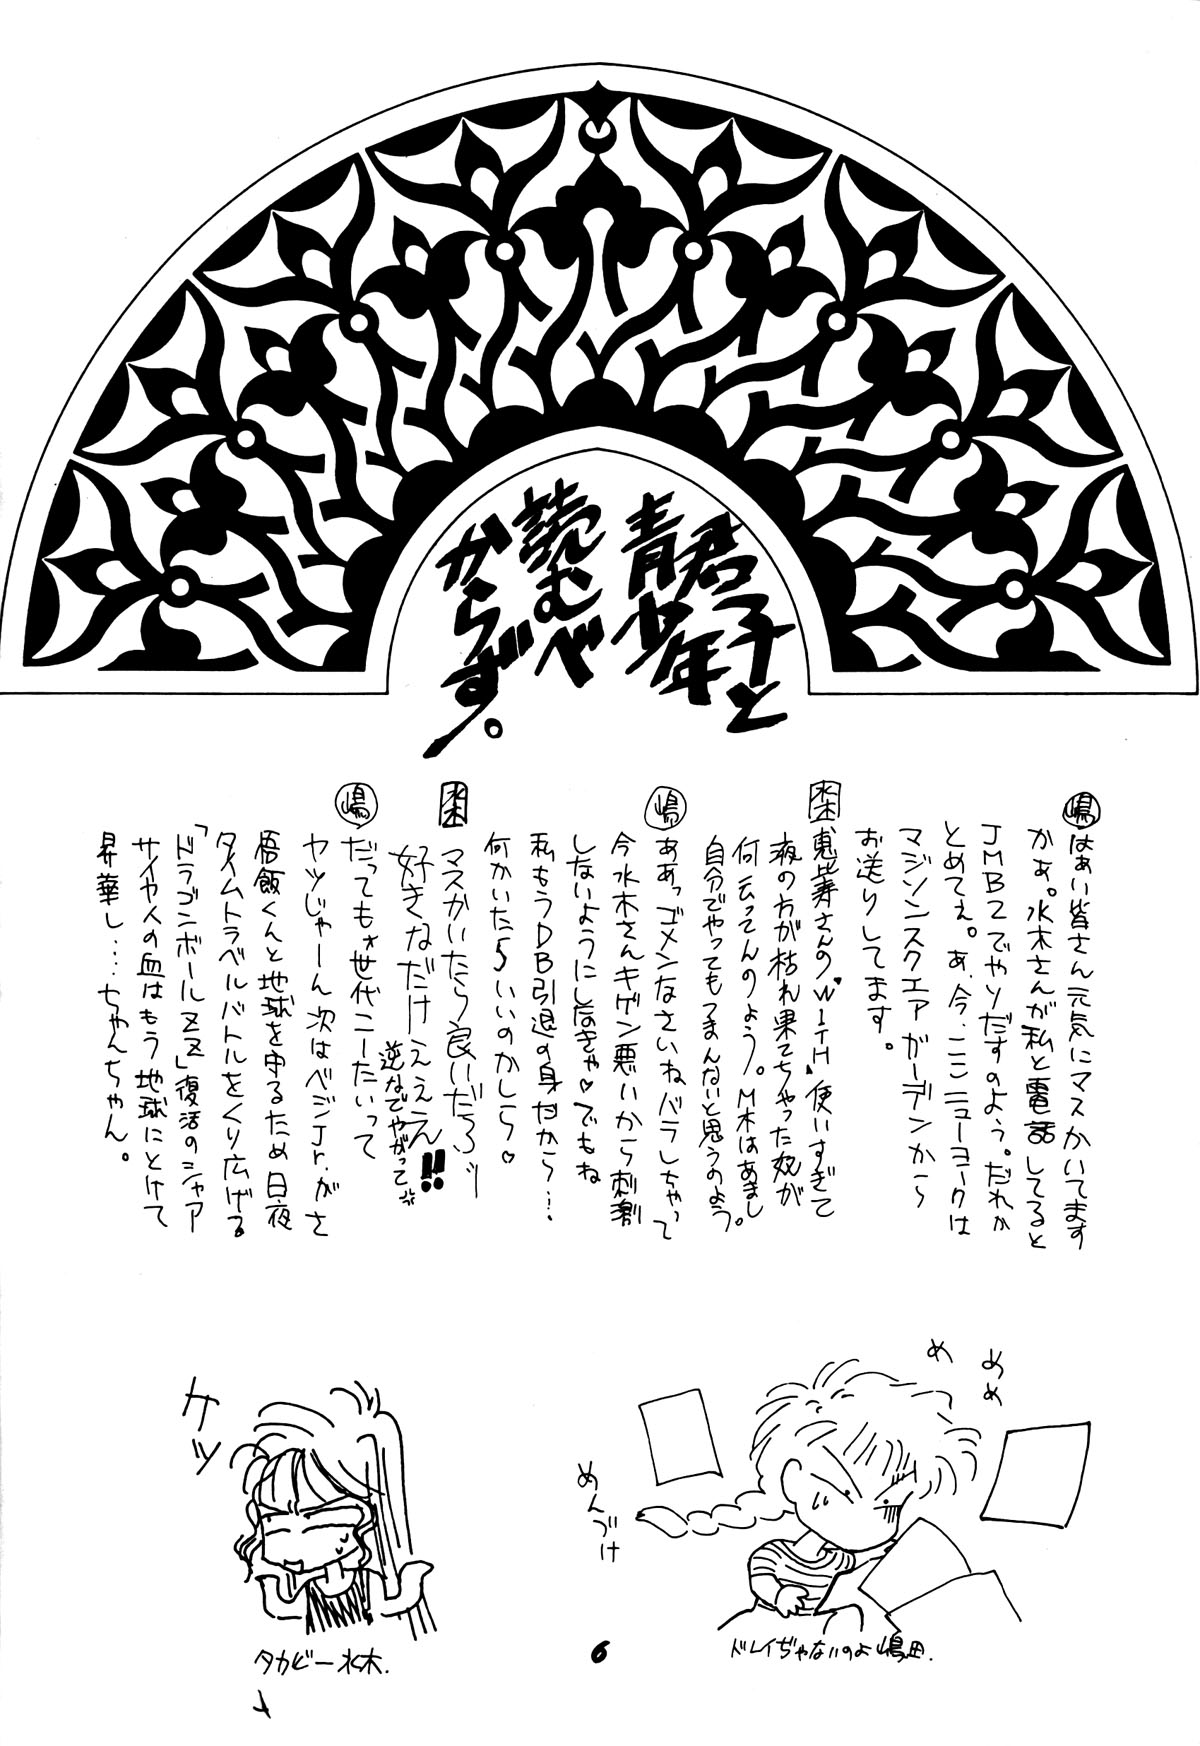 君子と
青少年
読むべ
からず。
嶋 はぁい皆さん元気にマスかいてます
かぁ。水木さんが私と電話してると
JMBZでやソだすのよう。だれか
とめてぇ。あ、今、ここニューヨークは
マジソンスクエアガーデンから
お送りしてます。
水木 恵比寿さんの〝WITH〟使いすぎて
液の方が枯れ果てちゃった奴が
何云ってんのよう。M木はあまし
自分でやってもつまんないと思うのよう。
嶋 ああっゴメンなさいねバラしちゃって
今水木さんキゲン悪いから刺激
しないようにしなきゃ♡でもね
私もうDB引退の身だから…。
何かいたらいいのかしら♡
水木 マスかいたら良いだろッ
好きなだけえええん!!
逆なでやがって
嶋 だってもォ世代こーたいって
ヤツじゃーん次はベジJr.がさ
悟飯くんと地球を守るため日夜
タイムトラベルバトルをくり広げる
「ドラゴンボールZZ」復活のシャア
サイヤ人の血はもう地球にとけて
昇華し…ちゃんちゃん。
ケッ
タカビー水木.
め
めめ
めんづけ
ドレイぢゃないのよ嶋田.
6